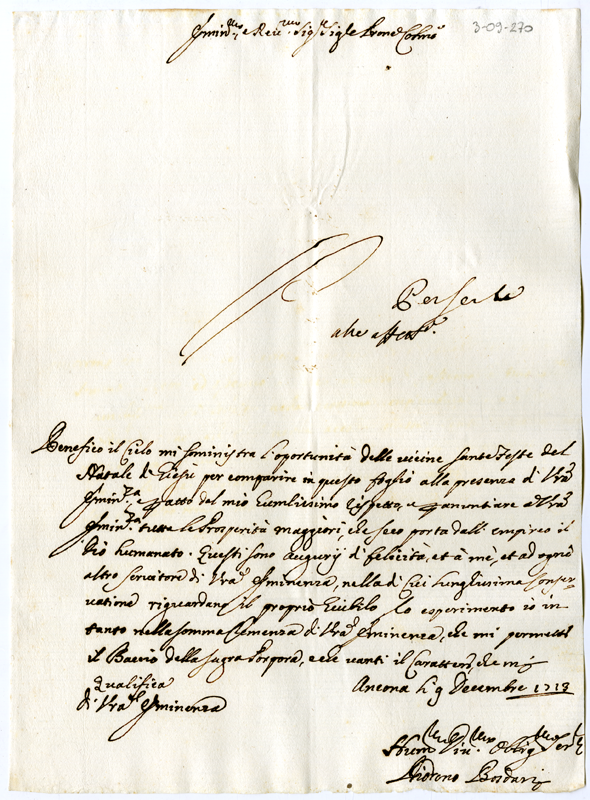 Emin.mo e Reu.mo Sig.re Sig.re e Prone Colmo
3-09-270
Per se
altre
Benefico il Cielo mi somministra l'oportunità delle vicine sante Feste del
Natale di Giesù per comparire in questo foglio alla presenza di Vra
Emin.za e del mio humilissimo rispetto, e annuntiare à Vra
Emin.za tutte le Prosperità maggiori, che seco porta dall' empireo il
Dio humanato. Questi sono augurij di felicità, et à mè, et ad ogni
altro seruitore di Vra Eminenza, nella di cui lunghissima conser-
uatione riguardano il proprio Giubilo. Lo esperimento io in
tanto nella somma Clemenza di Vra Eminenza, che mi permette
il Bacio della sagra Porpora, e che vanti il Carattere, che mi
qualifica
di Vra Eminenza
Ancona li 9 Decembre 1713
Hum.mo Diu.mo Oblig.mo Ser.re
Bosdari